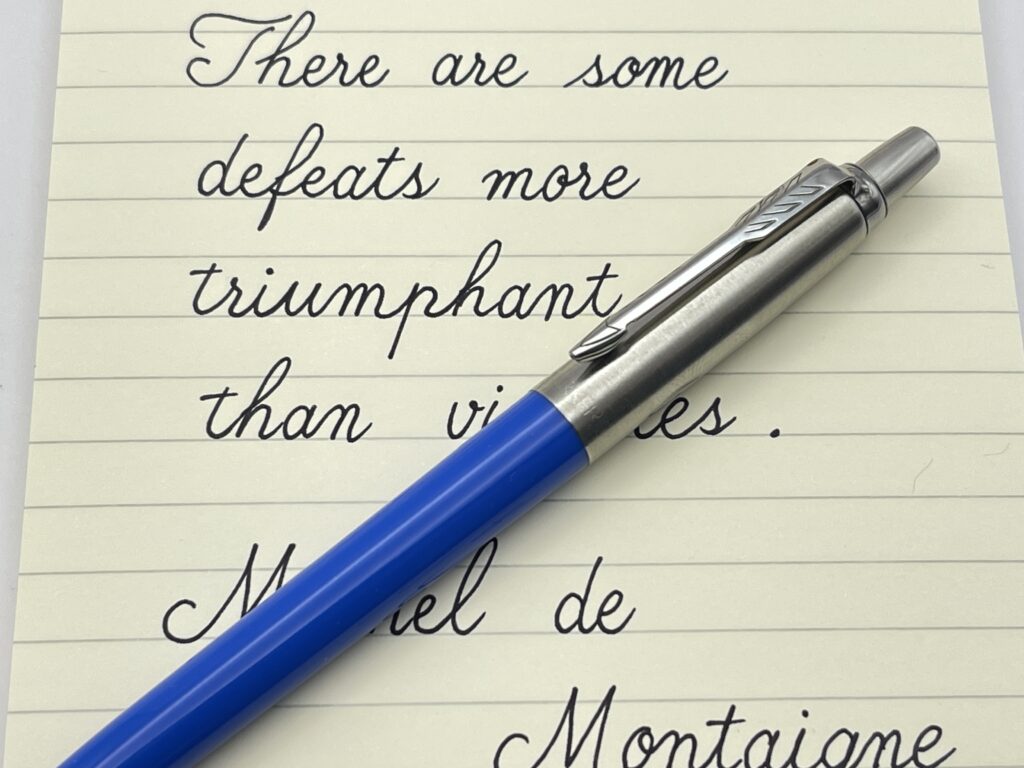 There are some
defeats more
triumphant
than .
de
Montaigne